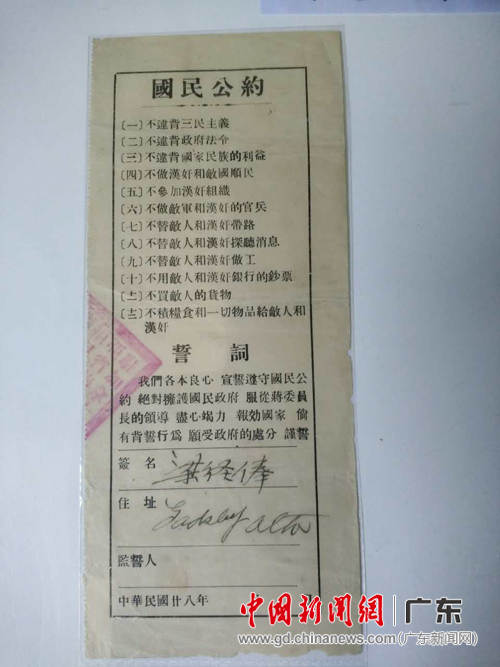 國民公約
〔一〕不違背三民主義
〔二〕不違背政府法令
〔三〕不違背國家民族的利益
〔四〕不做漢奸和敵國順民
〔五〕不參加漢奸組織
〔六〕不做敵軍和漢奸的官兵
〔七〕不替敵人和漢奸帶路
〔八〕不替敵人和漢奸探聽消息
〔九〕不替敵人和漢奸做工
〔十〕不用敵人和漢奸銀行的鈔票
〔十一〕不買敵人的貨物
〔十二〕不積糧食和一切物品給敵人和
漢奸
誓詞
我們各本良心 宣誓遵守國民公
約 絕對擁護國民政府 服從蔣委員
長的領導 盡心竭力 報効國家 倘
有背誓行爲 願受政府的處分 謹誓
簽名
住址
監誓人
中華民國廿八年
中國新聞網 广东
www.gd.chinanews.com(广东新闻网)